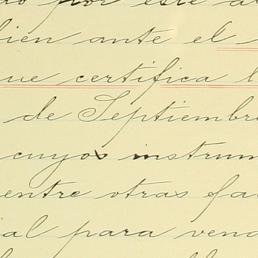 por este a
bien ante el
ue certifica l
de Septiembre
cuyos instrum
entre otras fa
al para vend